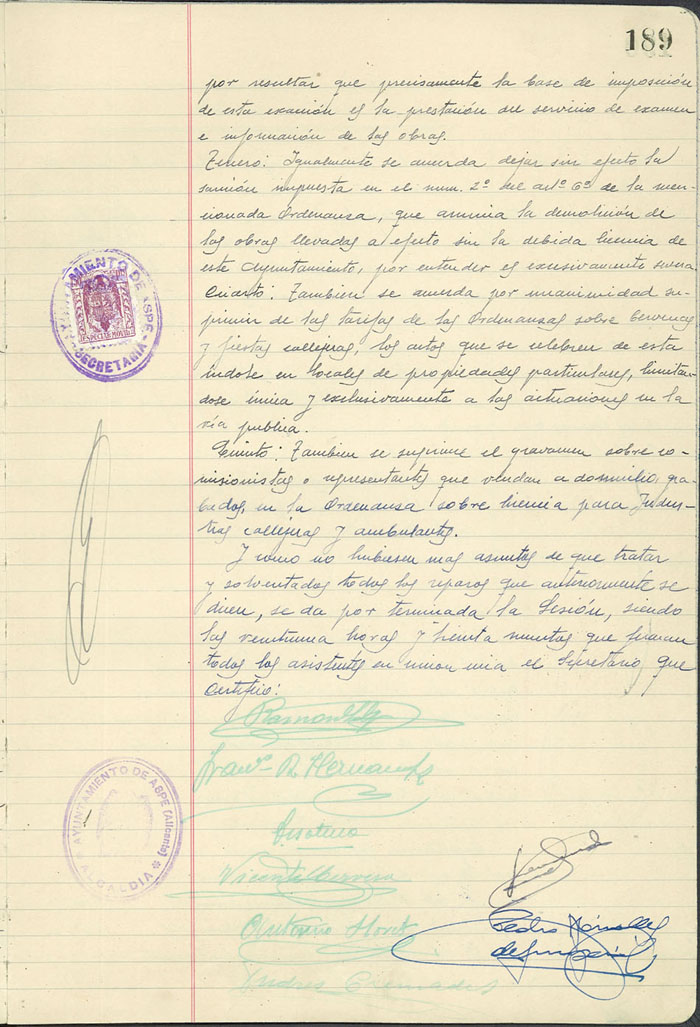 189
por resultar que precisamente la base de imposición
de esta exación es la prestación del servicio de examen
e información de las obras.
Tercero: Igualmente se acuerda dejar sin efecto la
sanción impuesta en el num. 2º del artº 6º de la men-
cionada Ordenansa, que anuncia la demolición de
las obras llevadas a efecto sin la debida licencia de
este Ayuntamiento, por entender es excesivamente
Cuarto: Tambien se acuerda por unanimidad su-
primir de las tarifas de las Ordenansas sobre Verbenas
y fiestas callejeras, los actos que se celebren de esta
índole en locales de propiedades particulares, limitan-
dose única y exclusivamente a las actuaciones en la
vía publica.
Quinto: Tambien se suprime el gravamen sobre co-
misionistas o representantes que vendan a domicilio, gra-
bados, en la Ordenansa sobre licencia para Indus-
trias callejeras y ambulantes.
Y como no hubiesen mas asuntos de que tratar
y solventados todos los reparos que anteriormente se
dicen, se da por terminada la Sesión, siendo
las veintiuna horas y treinta minutos que firman
todos los asistentes en union mia el Secretario que
Certifico:
AYUNTAMIENTO DE ASPE
SECRETARIA
ESPECIAL MOVIL
AYUNTAMIENTO DE ASPE (Alicante)
ALCALDIA
Franco R. Hernandez
Vicente Cervera
Antonio
Andres Cremades
Pedro